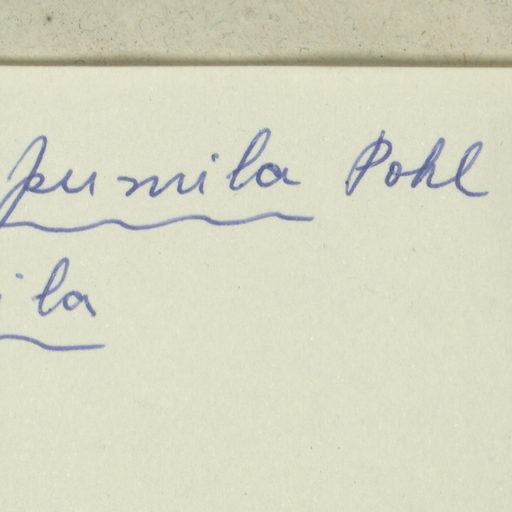 pumila Pohl
ila